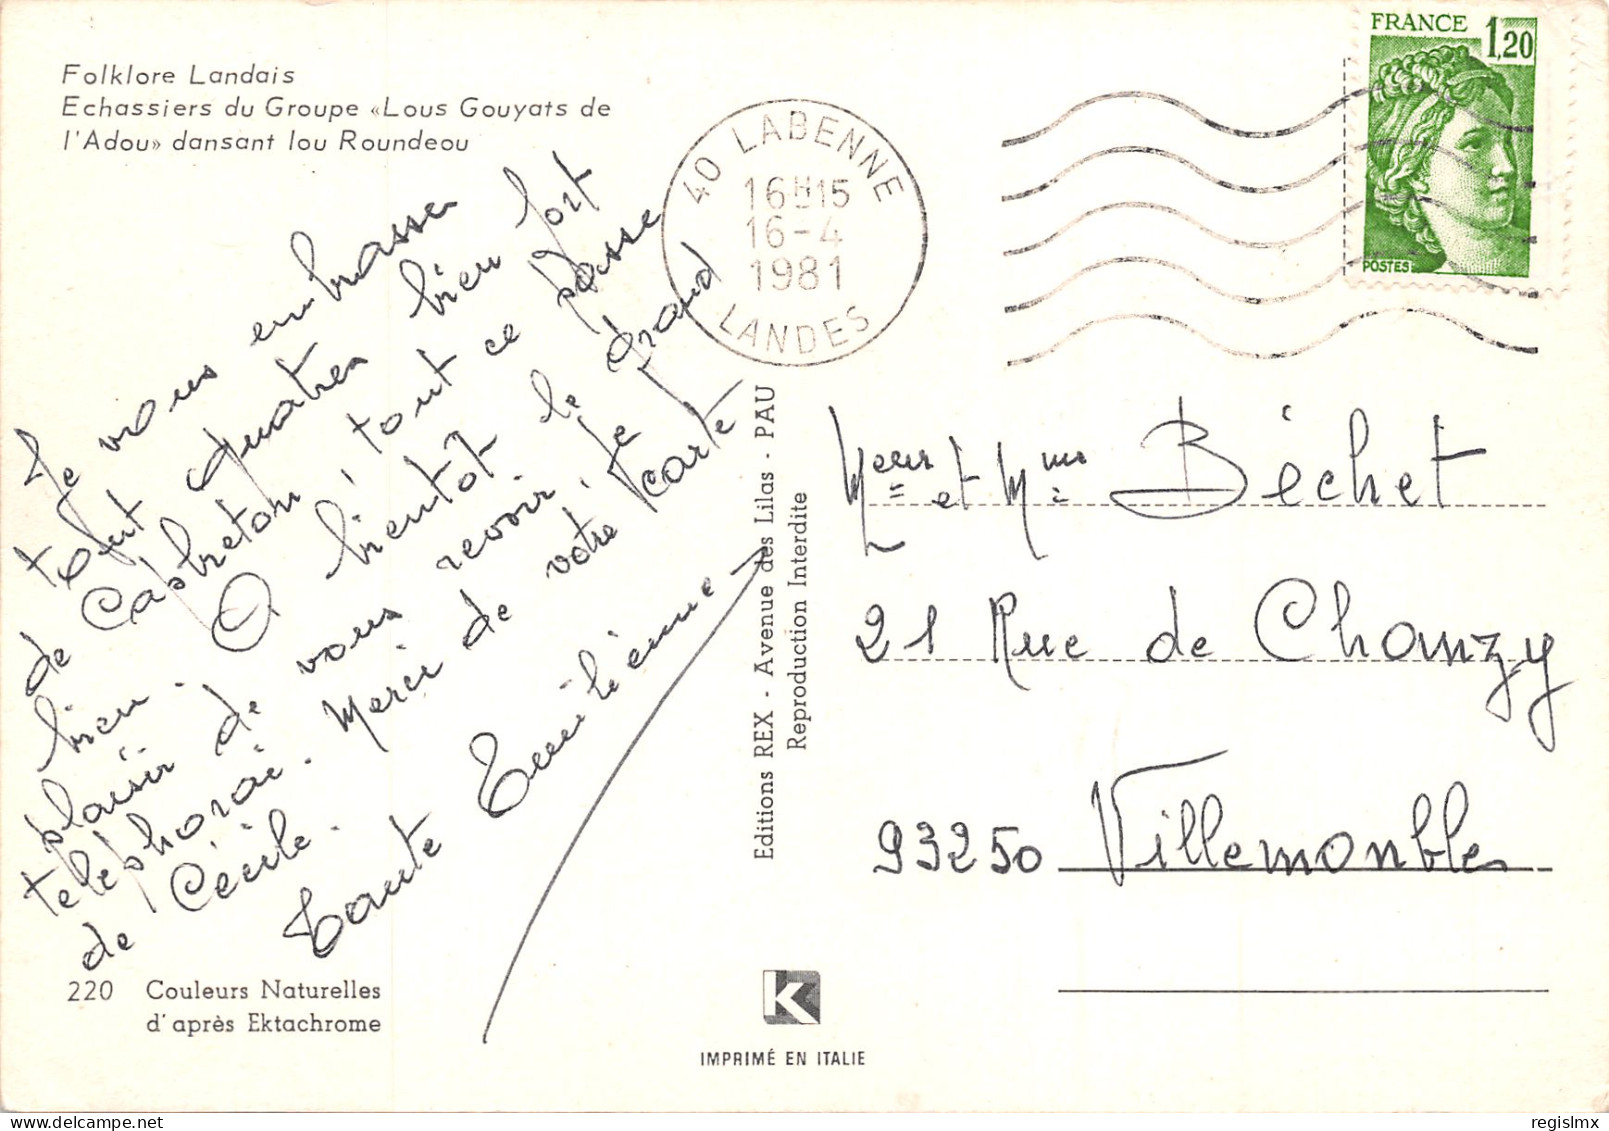 Folklore Landais
Echassiers du Groupe «Lous Gouyats de
l'Adou» dansant lou Roundeou
40 LABENNE
16H15
16-4
1981
LANDES
FRANCE
1,20
POSTES
Je vous embrasse
tout quatres bien fort
de Capbreton, tout ce passe
bien. A bientôt le grand
plaisir de vous revoir. Je
téléphonai. Merci de votre carte
de Cécile.
Tante Emilienne
Editions REX - Avenue des Lilas - PAU
Reproduction Interdite
Meur et Mme Béchet
21 Rue de Chanzy
93250 Villemonbles
220 Couleurs Naturelles
d'après Ektachrome
K
IMPRIMÉ EN ITALIE
regislmx